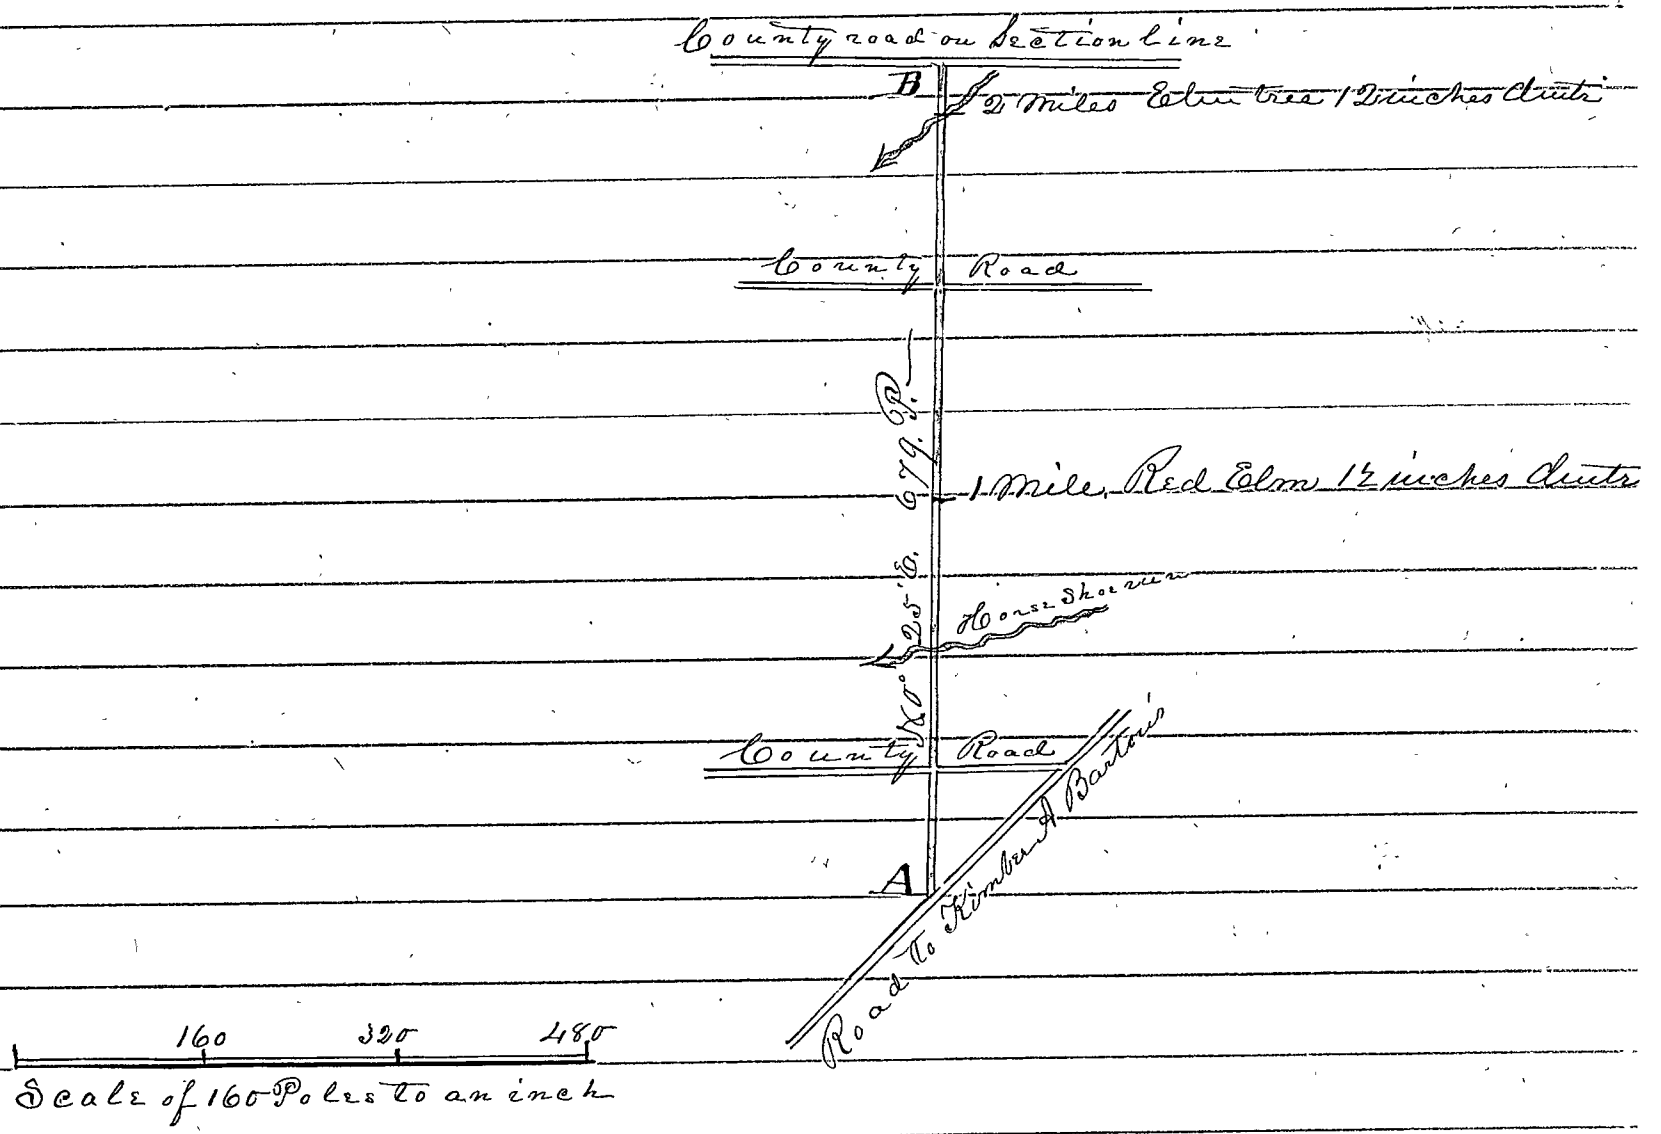 County road on Section line
B
2 miles Elm tree 12 inches diutr
County Road
N 0° 25' E. 679. P.
1 Mile. Red Elm 12 inches diutr
Horse Shoe run
County Road
A
Road to Kimber A Barton's
160 320 480
Scale of 160 Poles to an inch